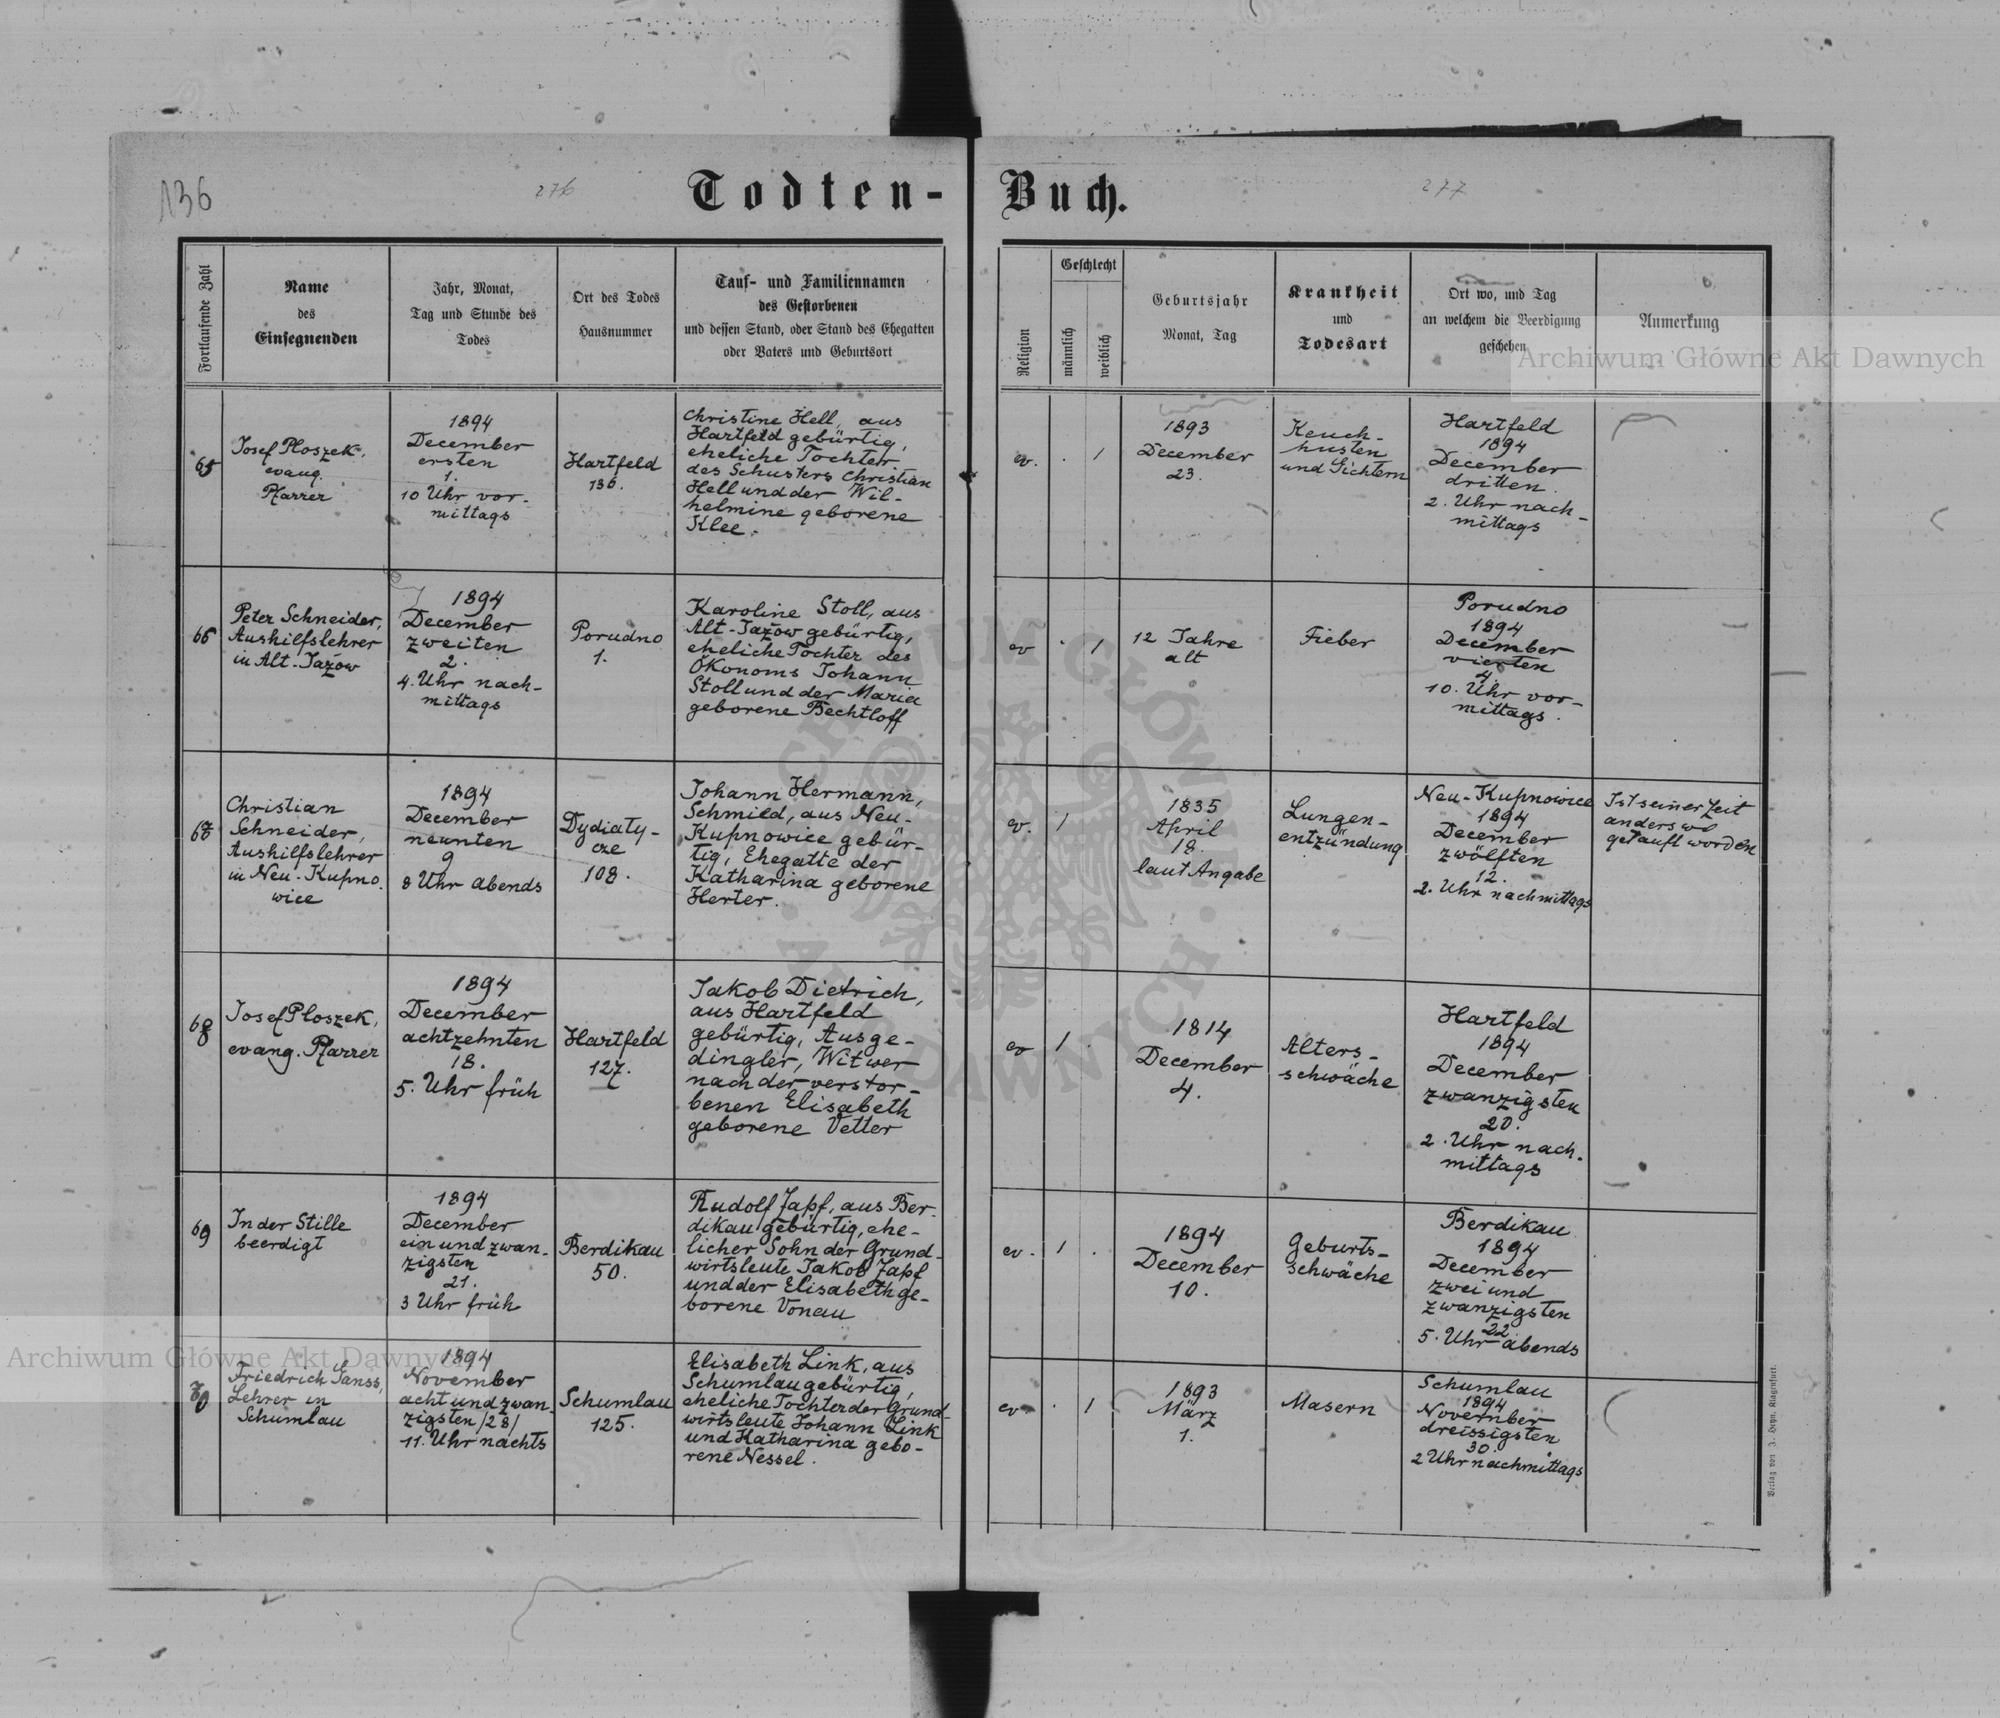 136
276
Todten-Buch.
277
Fortlaufende Zahl
Name
des
Einsegnenden
Jahr, Monat,
Tag und Stunde des
Todes
Ort des Todes
Hausnummer
Tauf- und Familiennamen
des Gestorbenen
und dessen Stand, oder Stand des Ehegatten
oder Vaters und Geburtsort
Religion
Geschlecht
männlich
weiblich
Geburtsjahr
Monat, Tag
Krankheit
und
Todesart
Ort wo, und Tag
an welchem die Beerdigung
geschehen
Anmerkung
Archiwum Główne Akt Dawnych
65
Josef Ploszek,
evang.
Pfarrer
1894
December
ersten
1.
10 Uhr vor-
mittags
Hartfeld
136.
Christine Hell, aus
Hartfeld gebürtig,
eheliche Tochter
des Schusters Christian
Hell und der Wil-
helmine geborene
Klee.
ev.
.
1
1893
December
23.
Keuch-
husten
und Gichtern
Hartfeld
1894
December
dritten.
2. Uhr nach-
mittags
66
Peter Schneider,
Aushilfslehrer
in Alt-Jazow
1894
December
zweiten
2.
4. Uhr nach-
mittags
Porudno
1.
Karoline Stoll, aus
Alt-Jazow gebürtig,
eheliche Tochter des
Ökonoms Johann
Stoll und der Maria
geborene Bechtloff
ev
.
1
12 Jahre
alt
Fieber
Porudno
1894
December
vierten
4.
10. Uhr vor-
mittags.
67
Christian
Schneider,
Aushilfslehrer
in Neu-Kupno
wice
1894
December
neunten
9
8 Uhr abends
Dydiaty-
cze
108.
Johann Hermann,
Schmied, aus Neu-
Kupnowice gebür-
tig, Ehegatte der
Katharina geborene
Herter.
ev.
1
1835
April
18.
laut Angabe
Lungen-
entzündung
Neu-Kupnowice
1894
December
zwölften
12.
2. Uhr nachmittags
Ist seiner Zeit
anders wo
getauft worden
68
Josef Ploszek,
evang. Pfarrer
1894
December
achtzehnten
18.
5. Uhr früh
Hartfeld
127.
Jakob Dietrich,
aus Hartfeld
gebürtig, Ausge-
dingler, Witwer
nach der verstor-
benen Elisabeth
geborene Vetter
ev
1
.
1814
December
4.
Alters-
schwäche
Hartfeld
1894
December
zwanzigsten
20.
2. Uhr nach-
mittags
69
In der Stille
beerdigt
1894
December
ein und zwan-
zigsten
21.
3 Uhr früh
Berdikau
50.
Rudolf Zapf, aus Ber-
dikau gebürtig, ehe-
licher Sohn der Grund-
wirtsleute Jakob Zapf
und der Elisabeth ge-
borene Vonau
ev.
1
.
1894
December
10.
Geburts-
schwäche
Berdikau
1894
December
zwei und
zwanzigsten
22.
5. Uhr abends
70
Friedrich Janss,
Lehrer in
Schumlau
1894
November
acht und zwan-
zigsten /28/
11. Uhr nachts
Schumlau
125.
Elisabeth Link, aus
Schumlau gebürtig,
eheliche Tochter der Grund-
wirtsleute Johann Link
und Katharina gebo-
rene Nessel.
ev
.
1
1893
März
1.
Masern
Schumlau
1894
November
dreissigsten
30.
2 Uhr nachmittags
Archiwum Główne Akt Dawnych
Verlag von J. Heyn, Klagenfurt.
ARCHIWUM GŁÓWNE AKT DAWNYCH